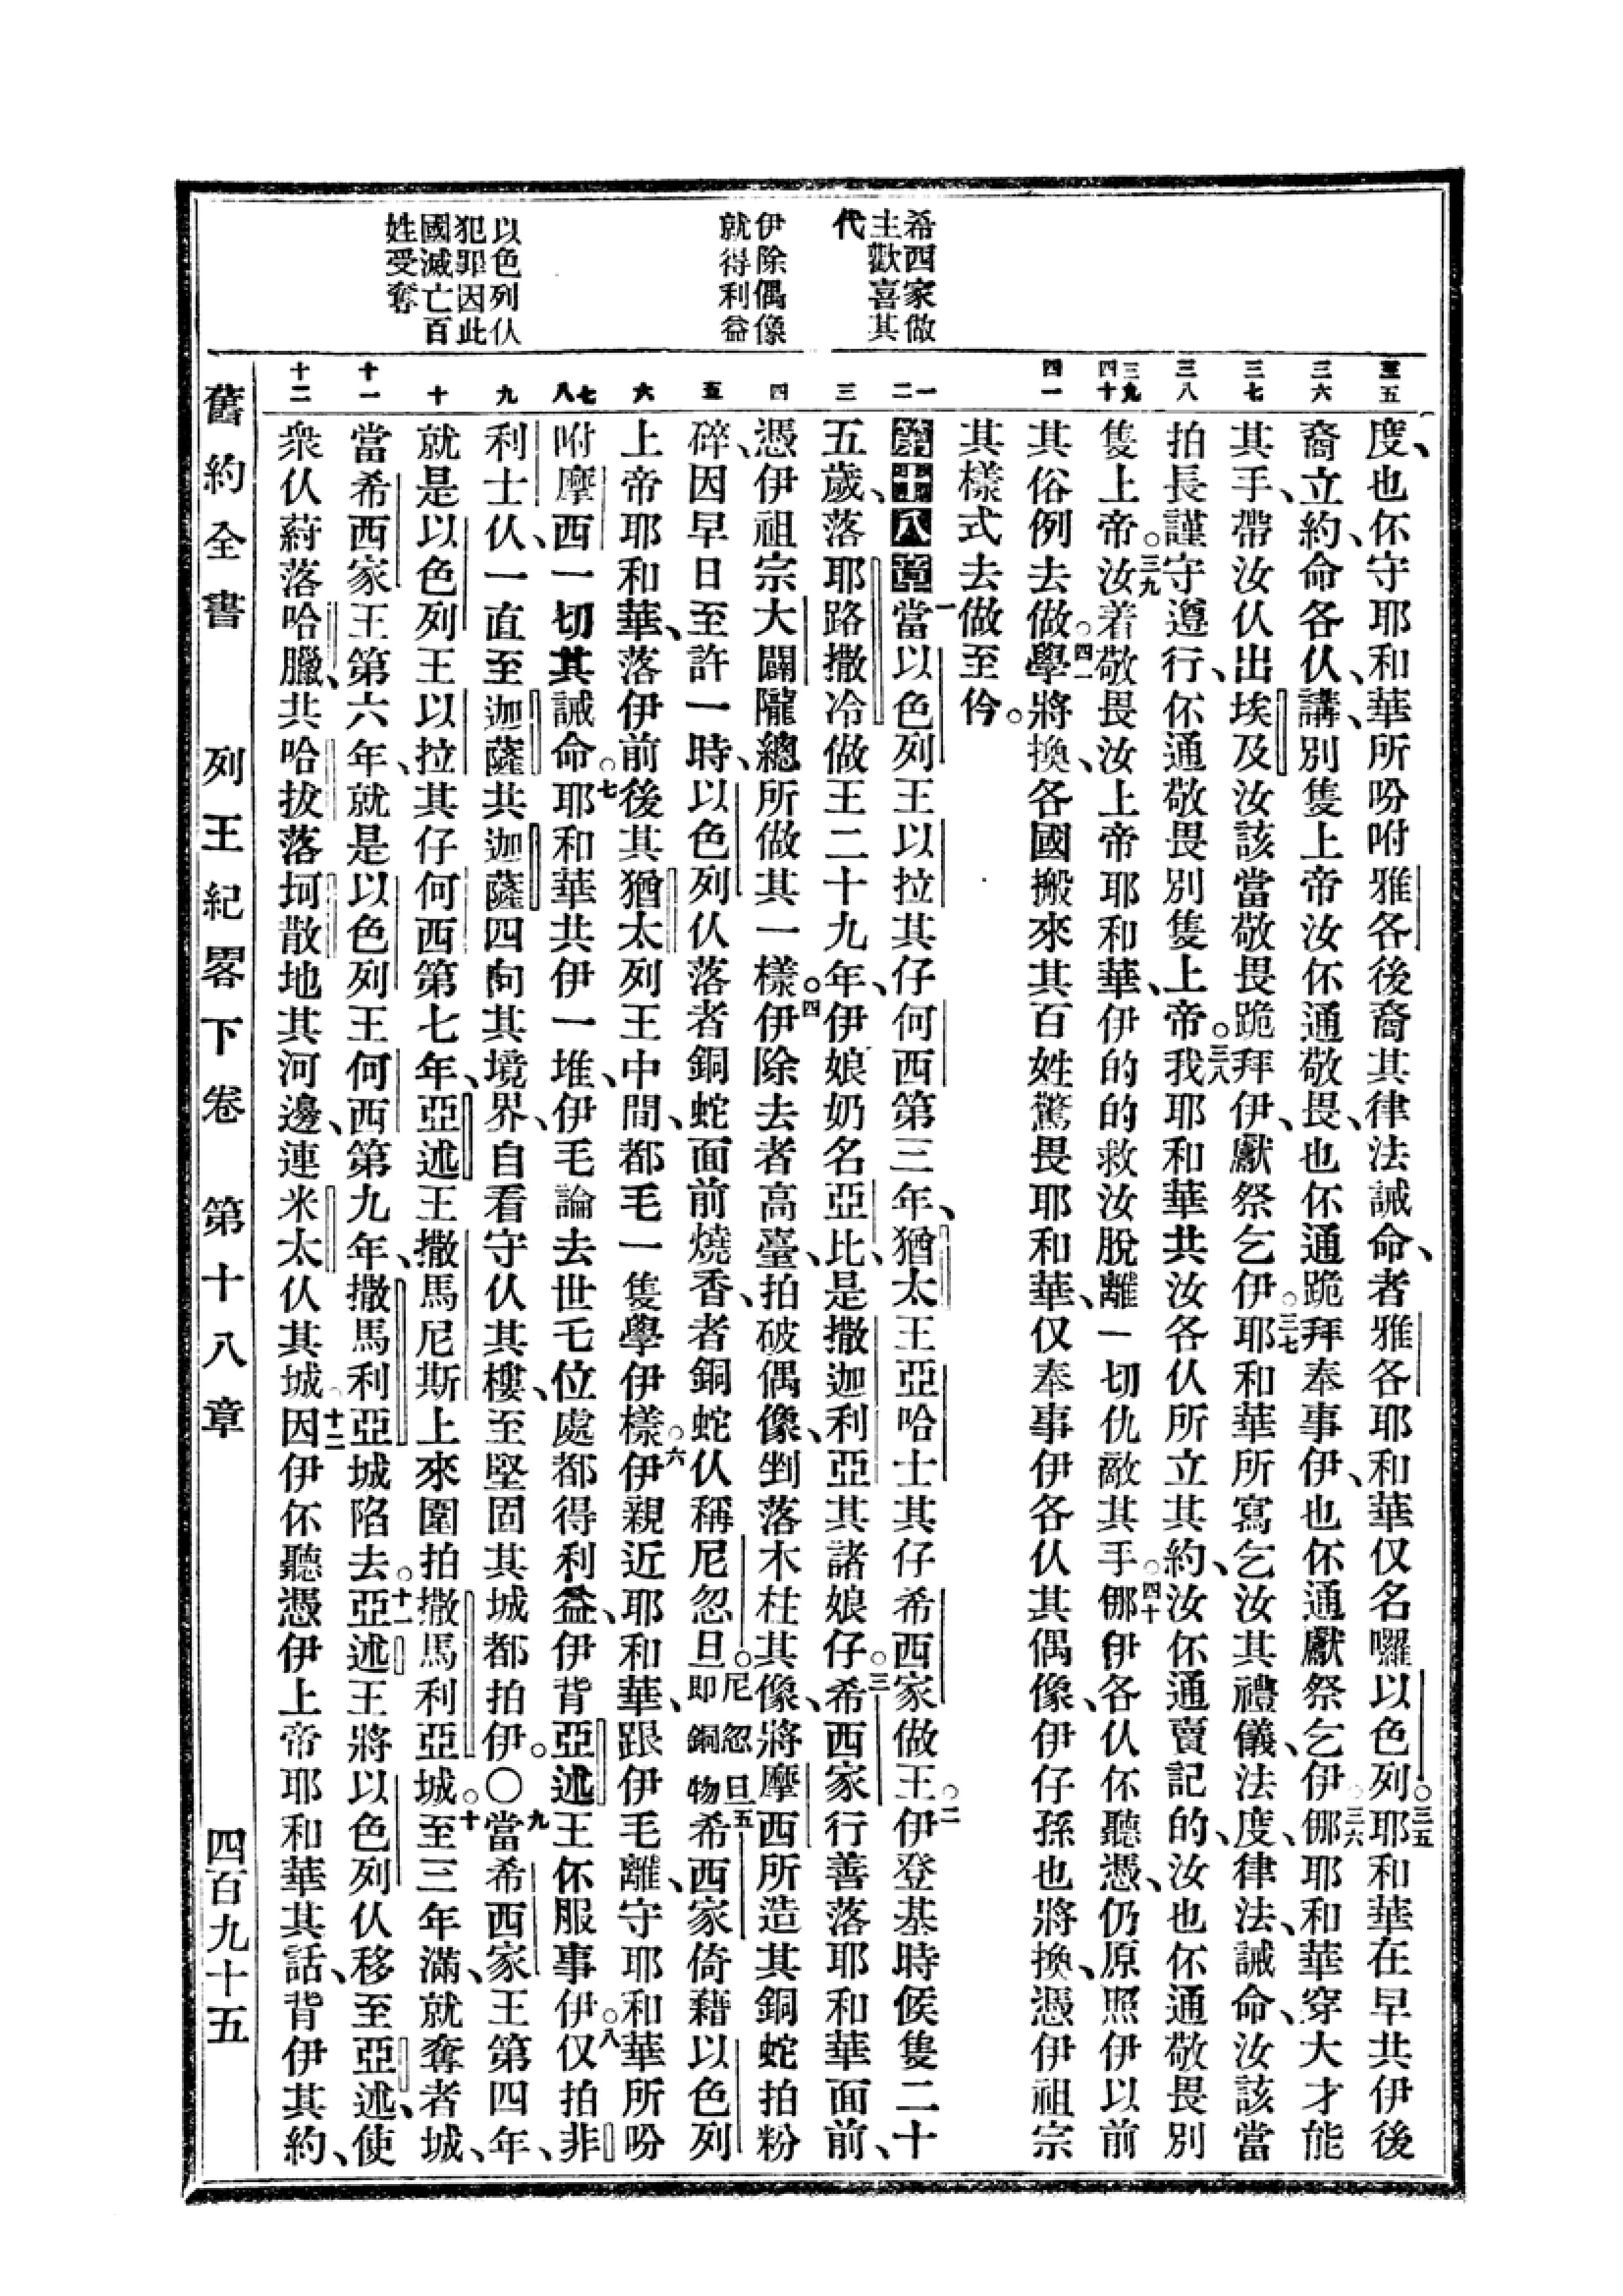 希西家做
主歡喜其
代
伊除偶像
就得利益
以色列仈
犯罪因此
國滅亡百
姓受奪
三五
三六
三七
三八
三九
四十
四一
一
二
三
四
五
六
七
八
九
十
十一
十二
度、也伓守耶和華所吩咐雅各後裔其律法誡命、者雅各耶和華仅名囉以色列。三五耶和華在早共伊後
裔立約、命各仈、講、別隻上帝汝伓通敬畏、也伓通跪拜奉事伊、也伓通獻祭乞伊。三六㑚耶和華穿大才能
其手、帶汝仈出埃及汝該當敬畏跪拜伊、獻祭乞伊。三七耶和華所寫乞汝其禮儀、法度、律法、誡命、汝該當
拍長謹守遵行、伓通敬畏別隻上帝。三八我耶和華共汝各仈所立其約、汝伓通賣記的、汝也伓通敬畏別
隻上帝。三九汝着敬畏汝上帝耶和華、伊的的救汝脫離一切仇敵其手。四十㑚伊各仈伓聽憑、仍原照伊以前
其俗例去做。四一學將換、各國搬來其百姓驚畏耶和華、仅奉事伊各仈其偶像、伊仔孫也將換、憑伊祖宗
其樣式去做至仱。
第十八章 一當以色列王以拉其仔何西第三年、猶太王亞哈士其仔希西家做王。二伊登基時候隻二十
五歲、落耶路撒冷做王二十九年、伊娘奶名亞比、是撒迦利亞其諸娘仔。三希西家行善落耶和華面前、
憑伊祖宗大闢隴總所做其一樣。四伊除去者高臺、拍破偶像、剉落木柱其像、將摩西所造其銅蛇拍粉
碎、因早日至許一時、以色列仈落者銅蛇面前燒香、者銅蛇仈稱尼忽旦。尼忽旦即銅物五希西家倚藉以色列
上帝耶和華、落伊前後其猶太列王中間、都毛一隻學伊樣。六伊親近耶和華、跟伊毛離、守耶和華所吩
咐摩西一切其誡命。七耶和華共伊一堆、伊毛論去世乇位處都得利益、伊背亞述王伓服事伊。八仅拍非
利士仈、一直至迦薩共迦薩四向其境界、自看守仈其樓、至堅固其城都拍伊。〇九當希西家王第四年、
就是以色列王以拉其仔何西第七年、亞述王撒馬尼斯上來圍拍撒馬利亞城。十至三年滿、就奪者城、
當希西家王第六年、就是以色列王何西第九年、撒馬利亞城陷去。十一亞述王將以色列仈移至亞述、使
衆仈葤落哈臘、共哈拔落坷散地其河邊、連米太仈其城。十二因伊伓聽憑伊上帝耶和華其話、背伊其約、
舊約全書 列王紀畧下卷 第十八章 四百九十五